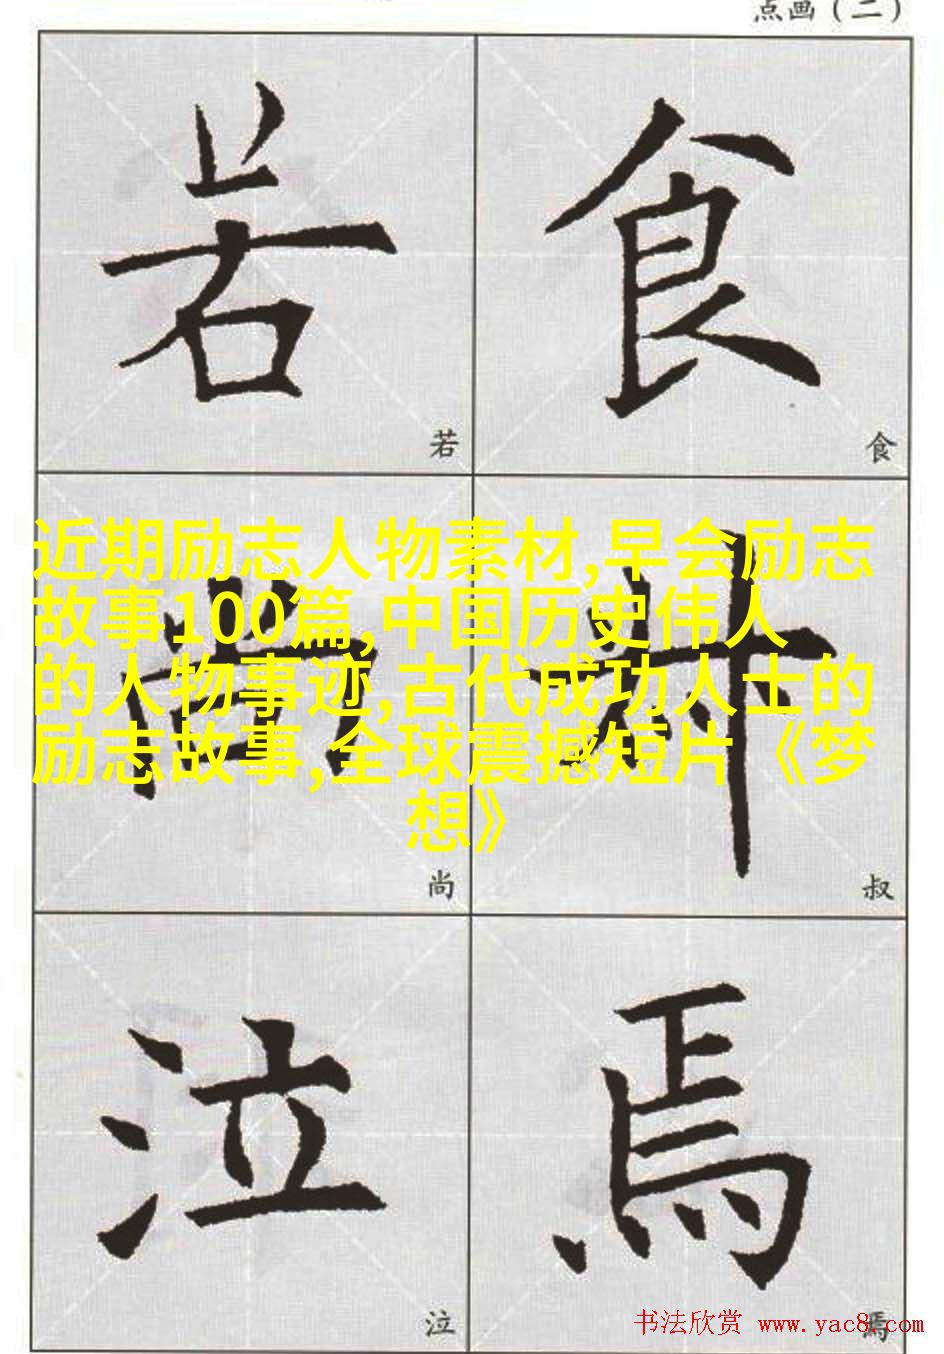 点画（二）
若
食
若
食
近期励志人物素材,早会励志
故事100篇,中国历史伟人
的人物事迹,古代成功人士的
励志故事,全球震撼短片《梦
想》
尚
叔
尚
叔
泣
焉
泣
焉
书法欣赏 www.yac8.com